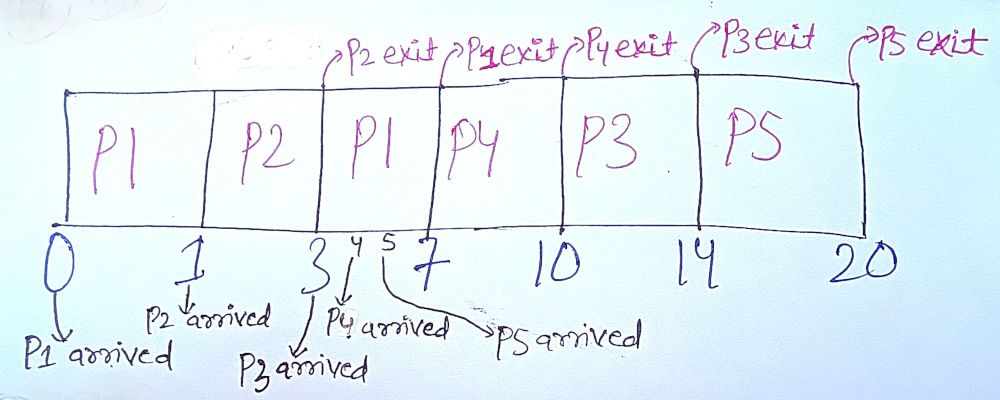 P2 exit P1 exit P4 exit P3 exit P5 exit
P1 P2 P1 P4 P3 P5
0 1 3 4 5 7 10 14 20
P1 arrived P2 arrived P3 arrived P4 arrived P5 arrived